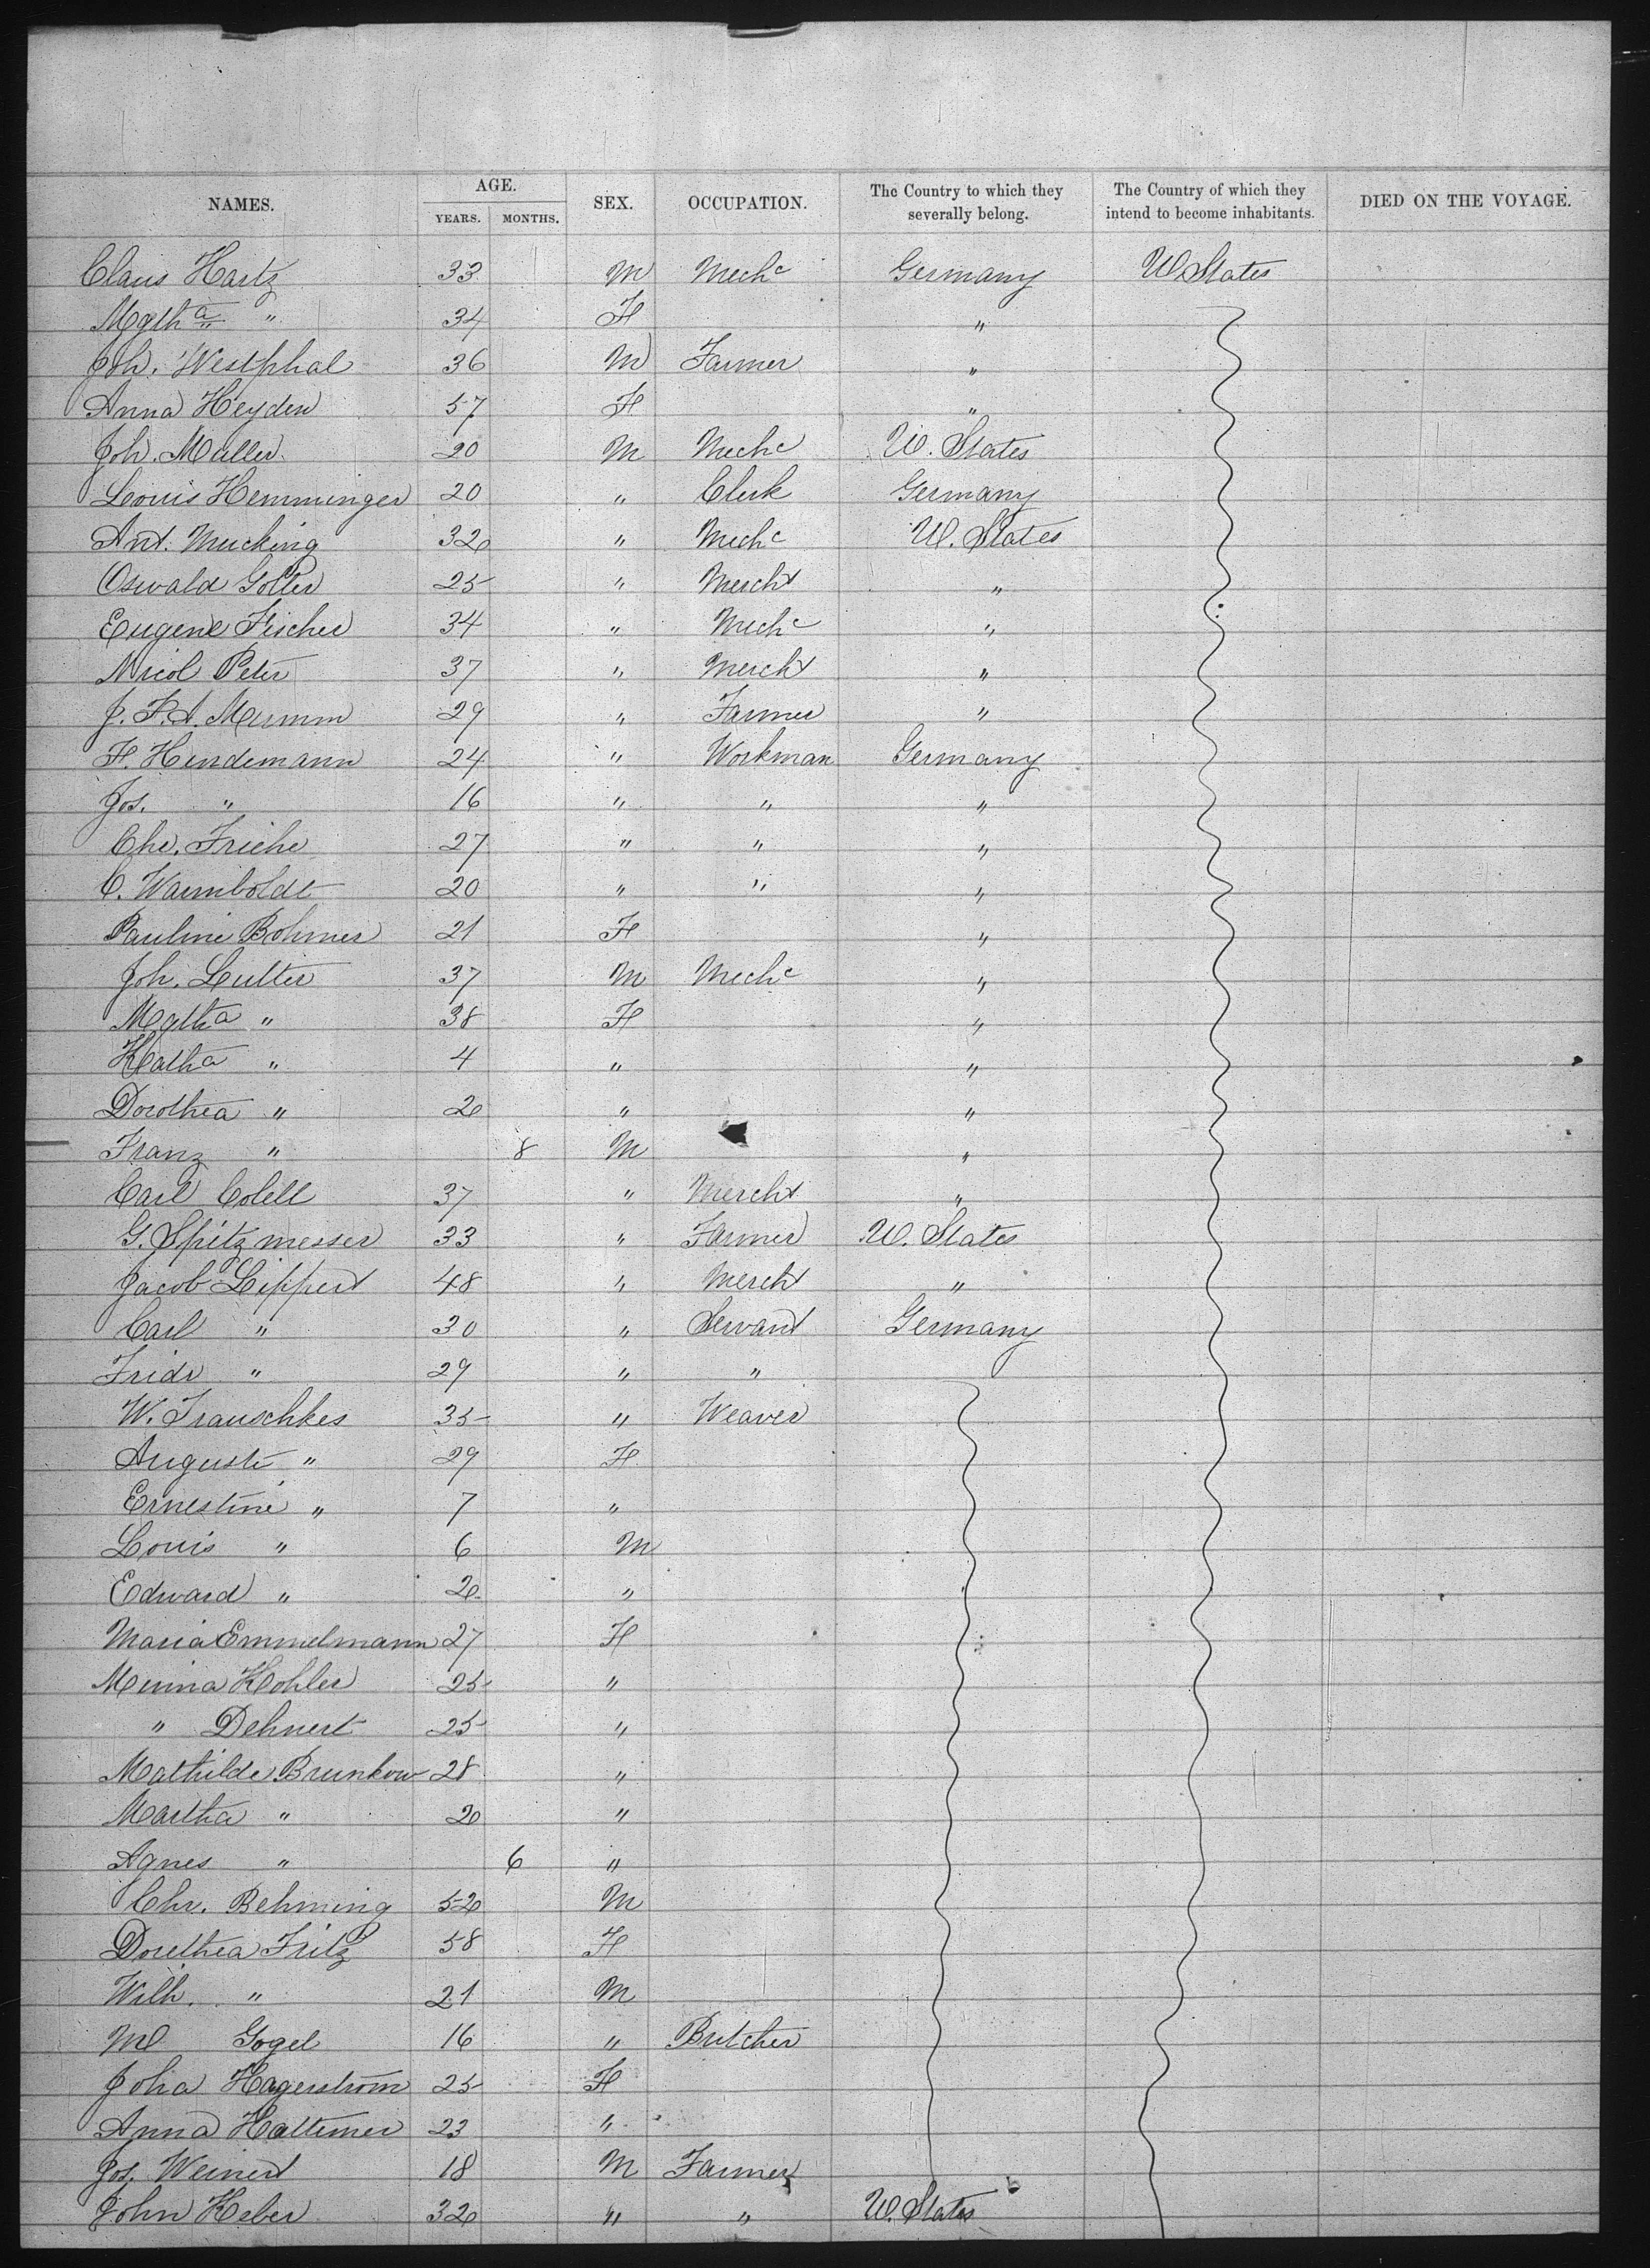 NAMES. AGE. SEX. OCCUPATION. The Country to which they severally belong. The Country of which they intend to become inhabitants. DIED ON THE VOYAGE.
YEARS. MONTHS.
Claus Hartz 33 M Mechc Germany U. States
Mgtha " 34 F "
Joh. Westphal 36 M Farmer "
Anna Heyden 57 F "
Joh. Muller 20 M Mechc U. States
Louis Hemminger 20 " Clerk Germany
Ant. Mucking 32 " Mechc U. States
Oswald Goller 25 " Mercht "
Eugene Fischer 34 " Mechc "
Nicol Peter 37 " Mercht "
J. F. A. Mumm 29 " Farmer "
F. Hindemann 24 " Workman Germany
Jos. " 16 " " "
Chr. Friche 27 " " "
C. Warmboldt 20 " " "
Pauline Bohmer 21 F "
Joh. Lutter 37 M Mechc "
Mgtha " 38 F "
Katha " 4 " "
Dorothea " 2 " "
Franz " 8 M "
Carl Colell 37 " Mercht "
G. Spitzmesser 33 " Farmer U. States
Jacob Lippert 48 " Mercht "
Carl " 30 " Servant Germany
Fridr " 29 " "
W. Trauschkes 35 " Weaver
Auguste " 29 F
Ernestine " 7 "
Louis " 6 M
Edward " 2 "
Maria Emmelmann 27 F
Minna Kohler 25 "
" Dehnert 25 "
Mathilde Brunkow 28 "
Martha " 2 "
Agnes " 6 "
Chr. Behming 52 M
Dorethea Fritz 58 F
Wilh. " 21 M
Ml Gogel 16 " Butcher
Joha Hagerstrom 25 F
Anna Haltimer 23 "
Jos. Weinert 18 M Farmer
John Keber 32 " " U. States